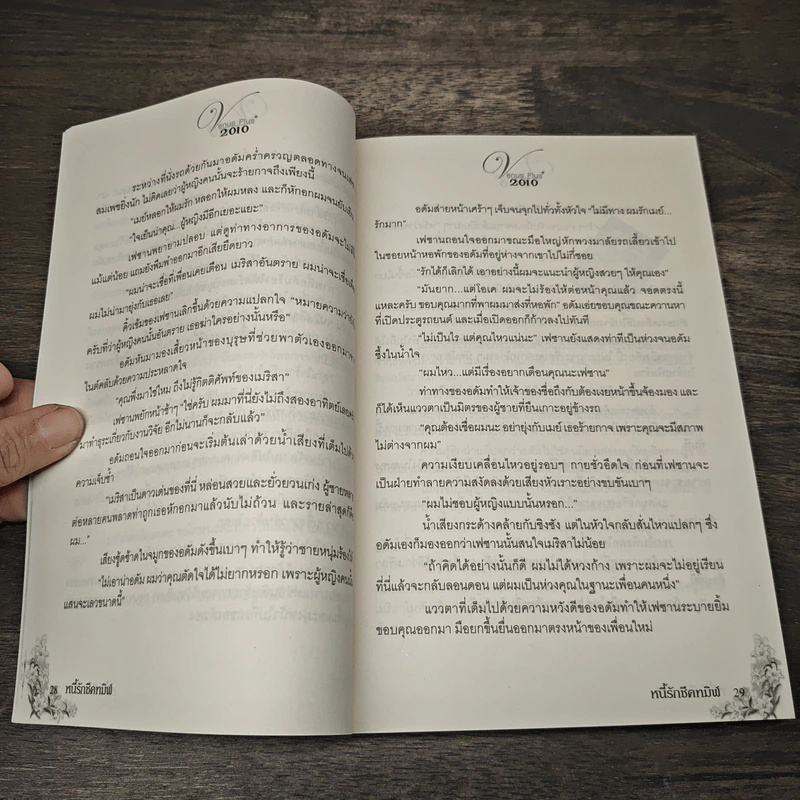 Venus Plus
2010
ระหว่างที่นั่งรถด้วยกันมาอดัมคร่ำครวญตลอดทางจน
สมเพชยิ่งนัก ไม่คิดเลยว่าผู้หญิงคนนั้นจะร้ายกาจถึงเพียงนี้
“เมย์หลอกให้ผมรัก หลอกให้ผมหลง และก็หักอกผมจน
“ใจเย็นน่าคุณ...ผู้หญิงมีอีกเยอะแยะ”
เฟซานพยายามปลอบ แต่ดูท่าทางอาการของอดัมจะไม่
แม้แต่น้อย แถมยังพึมพำออกมาอีกเสียยืดยาว
“ผมน่าจะเชื่อที่เพื่อนเคยเตือน เมริสาอันตราย ผมน่าจะเชื่อ
ผมไม่น่ามายุ่งกับเธอเลย”
คิ้วเข้มของเฟซานเลิกขึ้นด้วยความแปลกใจ “หมายความว่า
ครับที่ว่าผู้หญิงคนนั้นอันตราย เธอฆ่าใครอย่างนั้นหรือ”
อดัมหันมามองเสี้ยวหน้าของบุรุษที่ช่วยพาตัวเองออกมา
ในตัคลับด้วยความประหลาดใจ
“คุณพึ่งมาใช่ไหม ถึงไม่รู้กิตติศัพท์ของเมริสา”
เฟซานพยักหน้าช้าๆ “ใช่ครับ ผมมาที่นี่ยังไม่ถึงสองอาทิตย์เลย
มาทำธุระเกี่ยวกับงานวิจัย อีกไม่นานก็จะกลับแล้ว”
อดัมถอนใจออกมาก่อนจะเริ่มต้นเล่าด้วยน้ำเสียงที่เต็มไปด้วย
ความเจ็บช้ำ
“เมริสาเป็นดาวเด่นของที่นี่ หล่อนสวยและยั่วยวนเก่ง ผู้ชาย
ต่อหลายคนพลาดท่าถูกเธอหักอกมาแล้วนับไม่ถ้วน และรายล่าสุดก็คือ
ผม...”
เสียงซู้ดซ้าดในจมูกของอดัมดังขึ้นเบาๆ ทำให้รู้ว่าชายหนุ่มร้องไห้
“ไม่เอาน่าอดัม ผมว่าคุณตัดใจได้ไม่ยากหรอก เพราะผู้หญิงคนนั้น
แสนจะเลวขนาดนี้”
28 หนี้รักชีคทมิฬ
Venus Plus
2010
อดัมส่ายหน้าเศร้าๆ เจ็บจนจุกไปทั่วทั้งหัวใจ “ไม่มีทาง ผมรักเมย์...
รักมาก”
เฟซานถอนใจออกมาขณะมือใหญ่หักพวงมาลัยรถเลี้ยวเข้าไป
ในซอยหน้าหอพักของอดัมที่อยู่ห่างจากเขาไปไม่กี่ซอย
“รักได้ก็เลิกได้ เอาอย่างนี้ผมจะแนะนำผู้หญิงสวยๆ ให้คุณเอง”
“มันยาก...แต่โอเค ผมจะไม่ร้องไห้ต่อหน้าคุณแล้ว จอดตรงนี้
แหละครับ ขอบคุณมากที่พาผมมาส่งที่หอพัก” อดัมเอ่ยขอบคุณขณะควานหา
ที่เปิดประตูรถยนต์ และเมื่อเปิดออกก็ก้าวลงไปทันที
“ไม่เป็นไร แต่คุณไหวแน่นะ” เฟซานยังแสดงท่าทีเป็นห่วงจนอดัม
ซึ้งในน้ำใจ
“ผมไหว...แต่มีเรื่องอยากเตือนคุณนะเฟซาน”
ท่าทางของอดัมทำให้เจ้าของชื่อถึงกับต้องเงยหน้าขึ้นจ้องมอง และ
ก็ได้เห็นแววตาเป็นมิตรของผู้ชายที่ยืนเกาะอยู่ข้างรถ
“คุณต้องเชื่อผมนะ อย่ายุ่งกับเมย์ เธอร้ายกาจ เพราะคุณจะมีสภาพ
ไม่ต่างจากผม”
ความเงียบเคลื่อนไหวอยู่รอบๆ กายชั่วอึดใจ ก่อนที่เฟซานจะ
เป็นฝ่ายทำลายความสงัดลงด้วยเสียงหัวเราะอย่างขบขันเบาๆ
“ผมไม่ชอบผู้หญิงแบบนั้นหรอก...”
น้ำเสียงกระด้างคล้ายกับชิงชัง แต่ในหัวใจกลับสั่นไหวแปลกๆ ซึ่ง
อดัมเองก็มองออกว่าเฟซานนั้นสนใจเมริสาไม่น้อย
“ถ้าคิดได้อย่างนั้นก็ดี ผมไม่ได้หวงก้าง เพราะผมจะไม่อยู่เรียน
ที่นี่แล้วจะกลับลอนดอน แต่ผมเป็นห่วงคุณในฐานะเพื่อนคนหนึ่ง”
แววตาที่เต็มไปด้วยความหวังดีของอดัมทำให้เฟซานระบายยิ้ม
ขอบคุณออกมา มือยกขึ้นยื่นออกมาตรงหน้าของเพื่อนใหม่
หนี้รักชีคทมิฬ 29